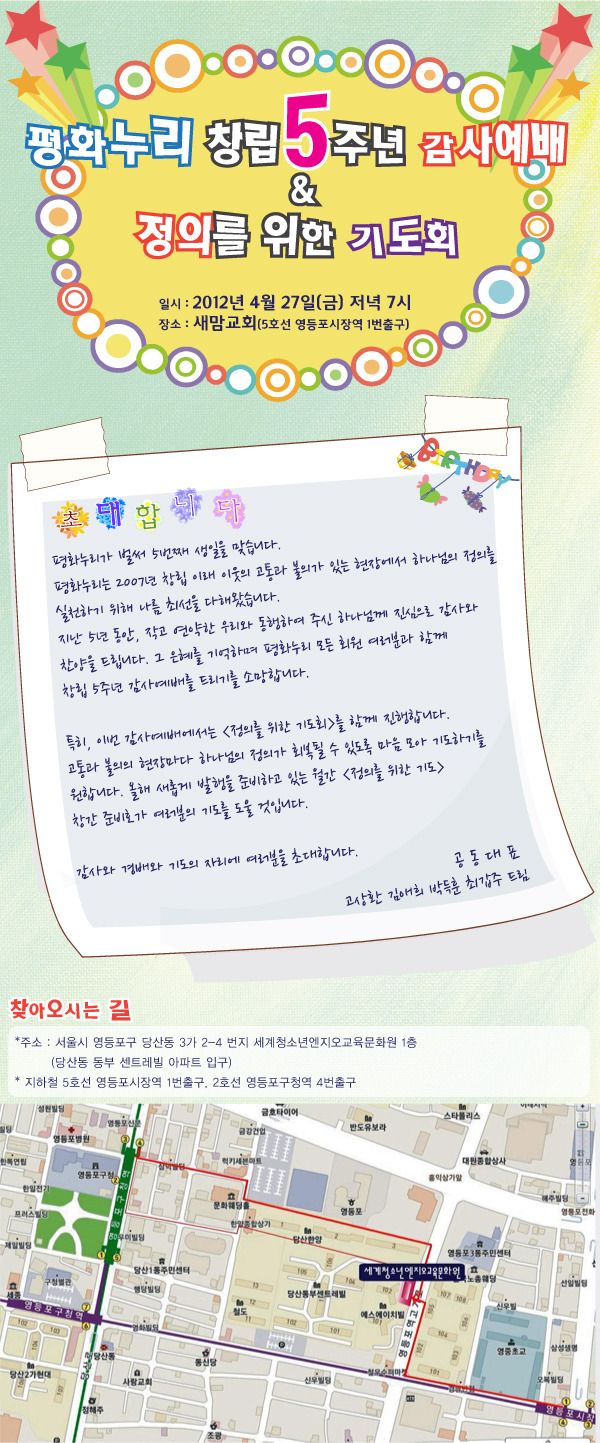 평화누리 창립5주년 감사예배
&
정의를 위한 기도회
일시 : 2012년 4월 27일(금) 저녁 7시
장소 : 새맘교회(5호선 영등포시장역 1번출구)
BIRTHDAY
초대합니다
평화누리가 벌써 5번째 생일을 맞습니다.
평화누리는 2007년 창립 이래 이웃의 고통과 불의가 있는 현장에서 하나님의 정의를
실천하기 위해 나름 최선을 다해왔습니다.
지난 5년 동안, 작고 연약한 우리와 동행하여 주신 하나님께 진심으로 감사와
찬양을 드립니다. 그 은혜를 기억하며 평화누리 모든 회원 여러분과 함께
창립 5주년 감사예배를 드리기를 소망합니다.
특히, 이번 감사예배에서는 <정의를 위한 기도회>를 함께 진행합니다.
고통과 불의의 현장마다 하나님의 정의가 회복될 수 있도록 마음 모아 기도하기를
원합니다. 올해 새롭게 발행을 준비하고 있는 월간 <정의를 위한 기도>
창간 준비호가 여러분의 기도를 도울 것입니다.
감사와 경배와 기도의 자리에 여러분을 초대합니다.
공동대표
고상환 김애희 박득훈 최갑주 드림
찾아오시는 길
*주소 : 서울시 영등포구 당산동 3가 2-4 번지 세계청소년엔지오교육문화원 1층
(당산동 동부 센트레빌 아파트 입구)
* 지하철 5호선 영등포시장역 1번출구, 2호선 영등포구청역 4번출구
성원빌딩
영등포신문
금호타이어
스타폴리스
영등포병원
금강건업
반도유보라
대원종합상사
한독연립
영등포구청
삼덕빌딩
럭키세븐마트
홍익상가앞
한일전기
문화웨딩홀
영등포
해주빌딩
프러스빌딩
한양종합상가
당산한양
영등포전화
제일빌딩
우미빌딩
영등포구청역
세계청소년엔지오교육문화원
영등포3동주민센터
구청별관
당산1동주민센터
당산동부센트레빌
노총웨딩
선일빌딩
세종
행당빌딩
철도
에스에이치빌
우신빌
영등포구청역
영화빌딩
영중초교
삼성생명
당산동
통신당
당산2가현대
사랑교회
우신빌딩
오복빌딩
정해주
조광
영등포시장